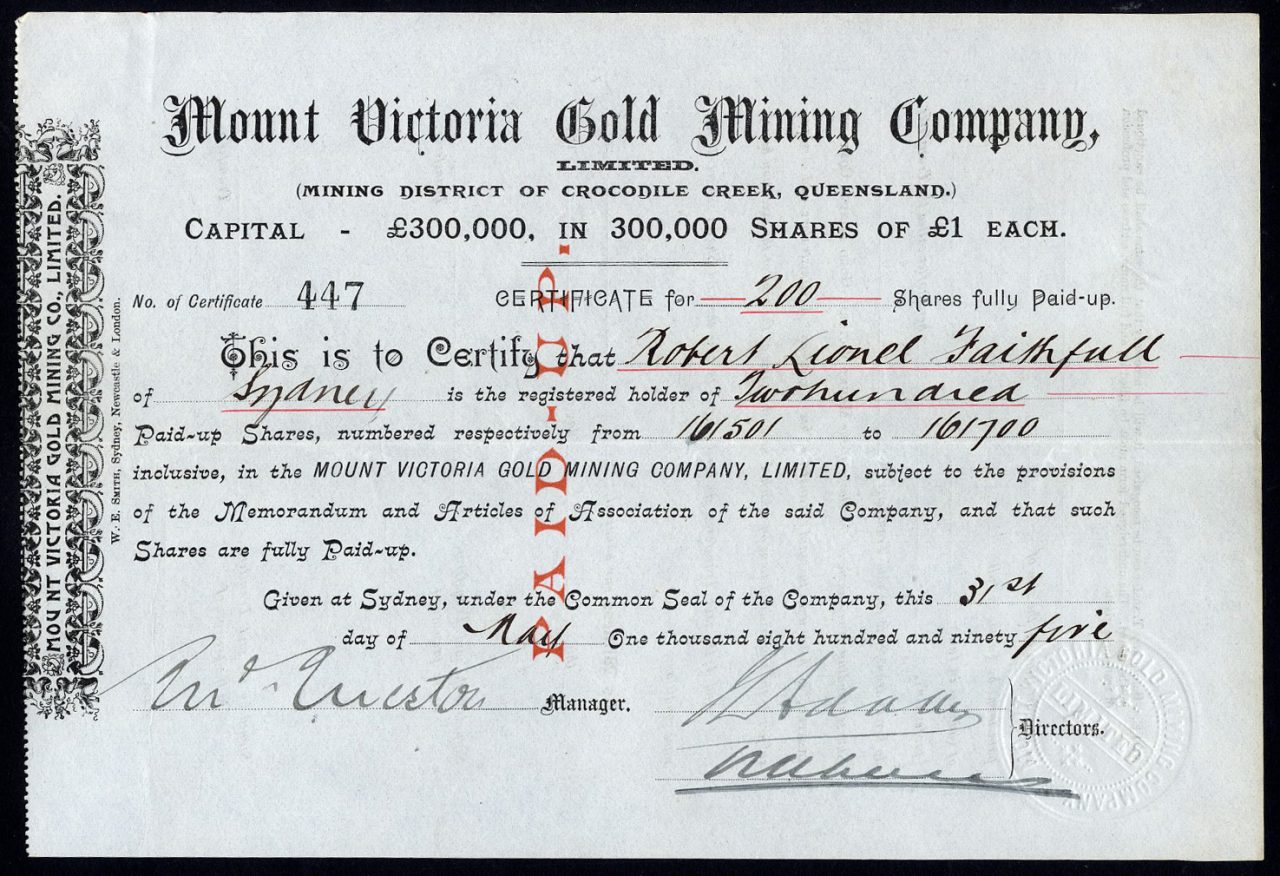 Mount Victoria Gold Mining Company,
LIMITED.
(MINING DISTRICT OF CROCODILE CREEK, QUEENSLAND.)
CAPITAL - £300,000, IN 300,000 SHARES OF £1 EACH.
No. of Certificate 447 CERTIFICATE for 200 Shares fully Paid-up.
This is to Certify that Robert Lionel Faithfull
of Sydney is the registered holder of Twohundred
Paid-up Shares, numbered respectively from 161501 to 161700
inclusive, in the MOUNT VICTORIA GOLD MINING COMPANY, LIMITED, subject to the provisions
of the Memorandum and Articles of Association of the said Company, and that such
Shares are fully Paid-up.
Given at Sydney, under the Common Seal of the Company, this 31st
day of May One thousand eight hundred and ninety five
Manager.
Directors.
PAID-UP.
MOUNT VICTORIA GOLD MINING CO., LIMITED.
W. E. SMITH, Sydney, Newcastle & London.
MOUNT VICTORIA GOLD MINING COMPANY
LIMITED